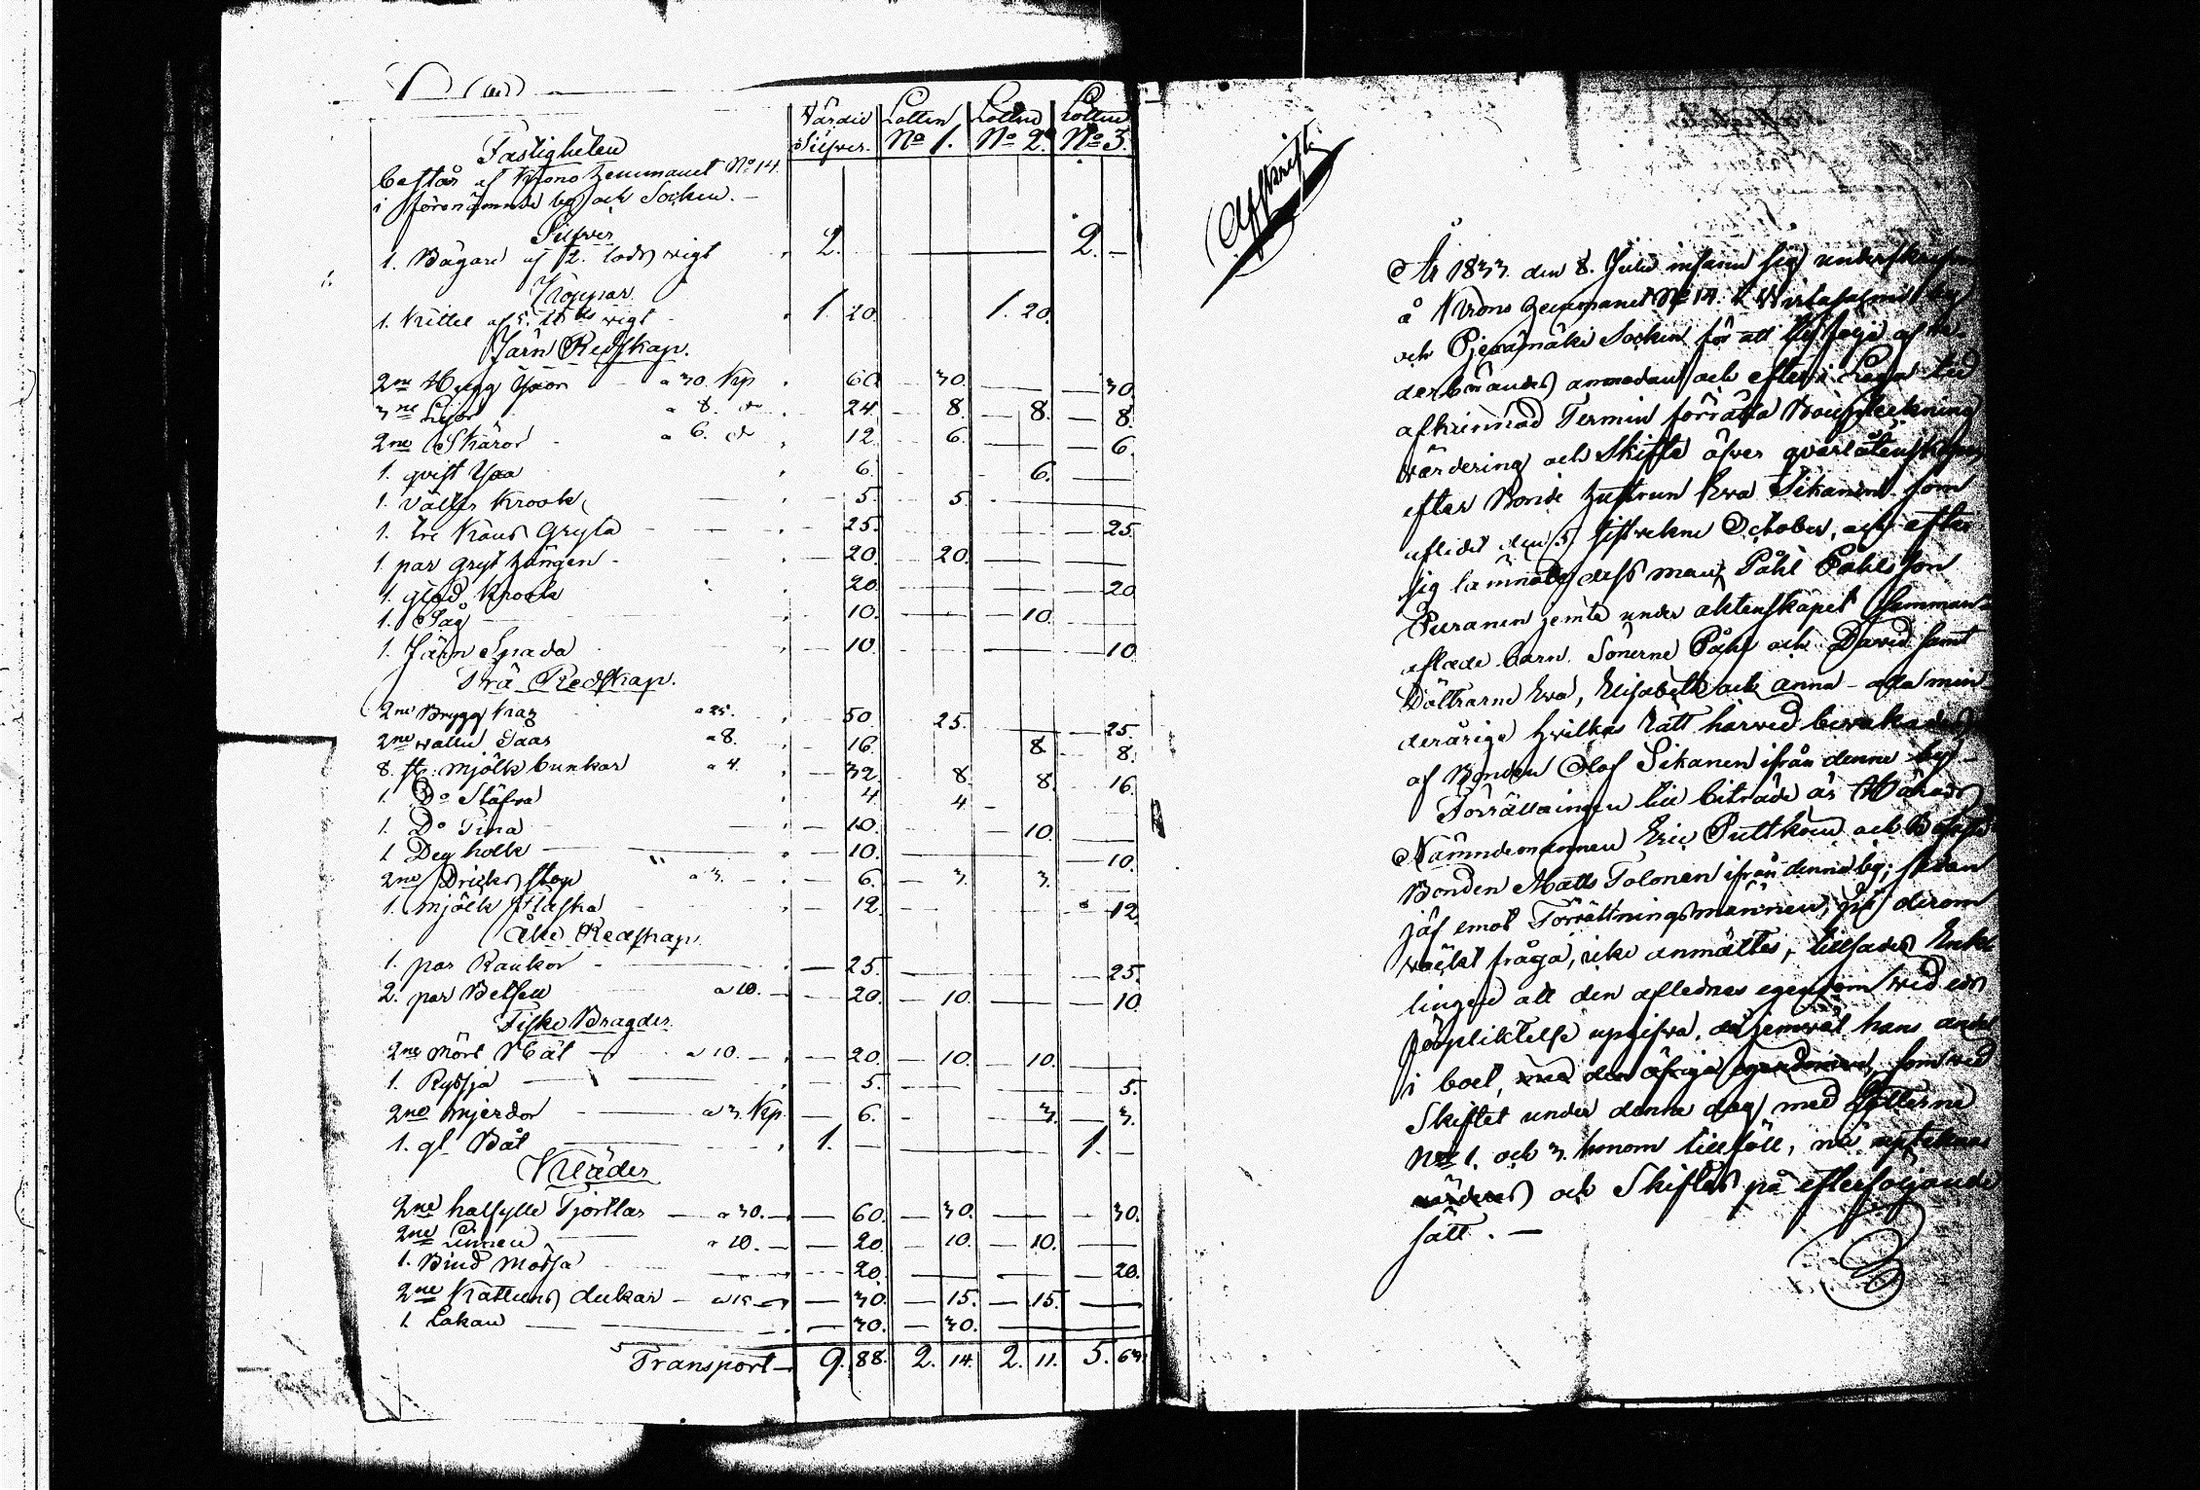 Värdie Silfver. Lotten No 1. Lotten No 2. Lotten No 3.
Fastigheten
består af Krono hemmanet No 14.
i förenämnde by och Socken. —
Silfver
1. Bägare af 2. lods wigt 2. — 2. —
Koppar
1. Kittel af 5. wigt 1. 20. 1. 20.
Järn Redskap.
2ne Hugg Yxor a 30. Kp. 60. 30. — 30.
3ne Lijor a 8. do 24. 8. 8. 8.
2ne Skäror a 6. do 12. 6. — 6.
1. qvist Yxa 6. 6. —
1. Krook 5. 5.
1. tre Kans Gryta 25. — 25.
1. par gryt hängen 20. 20. —
1. glöd krook 20. — 20.
1. Såg 10. — 10.
1. Järn Spada 10. — 10.
Trä Redskap.
2ne Brygg kar a 25. 50. 25. 25.
2ne watten Saar a 8. 16. 8. 8.
8. st. mjölk bunkar a 4. 32. 8. 8. 16.
1. Do Stäfva 4 4 —
1. Do Tina 10. — 10. —
1 Deg holk 10. — 10.
2ne Dricks stop a 3. 6. 3. 3. —
1. mjölk flaska 12. — 12
Åke Redskap.
1. par Kaukor 25. — 25.
2. par Betslen a 10. 20. 10. — 10.
Fiske Bragder
2ne Mört Nät a 10. 20. 10. 10. —
1. Ryssja 5. — 5.
2ne mjerdor a 3. Kp. 6. 3. 3.
1. gl. Båt 1. — 1. —
Kläder
2ne halfylle Tjortlar a 30. 60. 30. — 30.
2ne Linnen a 10. 20. 10. 10. —
1. Bind Mössa 20. — 20.
2ne Kattuns dukar a 15 30. 15. 15. —
1. Lakan 30. 30. —
Transport 9. 88. 2. 14. 2. 11. 5. 63.
Afskrift.
År 1833. den 8. Julii infann sig
å Krono hemmanet No 14. i Wirtasalmi by
och Pjelamäki Socken för att till följe af
anmodan och efter i Laga tid
afkunnad Termin förrätta Bouppteckning
värdering och Skifte öfver qvarlåtenskapen
efter Bonde hustrun Ewa Sikanen som
aflidit den 5 sistvekne October, och efter
sig lämnat dess man Påhl Påhlsson
Puranen jemte under äktenskapet samman-
aflade barn Sönerne Påhl och David samt
Döttrarne Ewa, Elisabeth och Anna — alla min-
deråriga hvilkas rätt härvid bevakades
af Bonden Olof Sikanen ifrån denne by —
Förrättningen till biträde är Härads
Nämndemannen Eric Puttkoin och
Bonden Matts Tolonen ifrån denne by; sedan
jäf emot Förrättningsmännen, på derom
wäckt fråga, icke anmältes, tillsades Enk-
lingen att den aflednes egendom wid eds
förpliktelse uppgifva, då jemväl hans andel
i boet, som wid
Skiftet under denne dag med Lotterne
No 1. och 3. honom tillföll, nu
och Skiftes på efterföljande
sätt. —